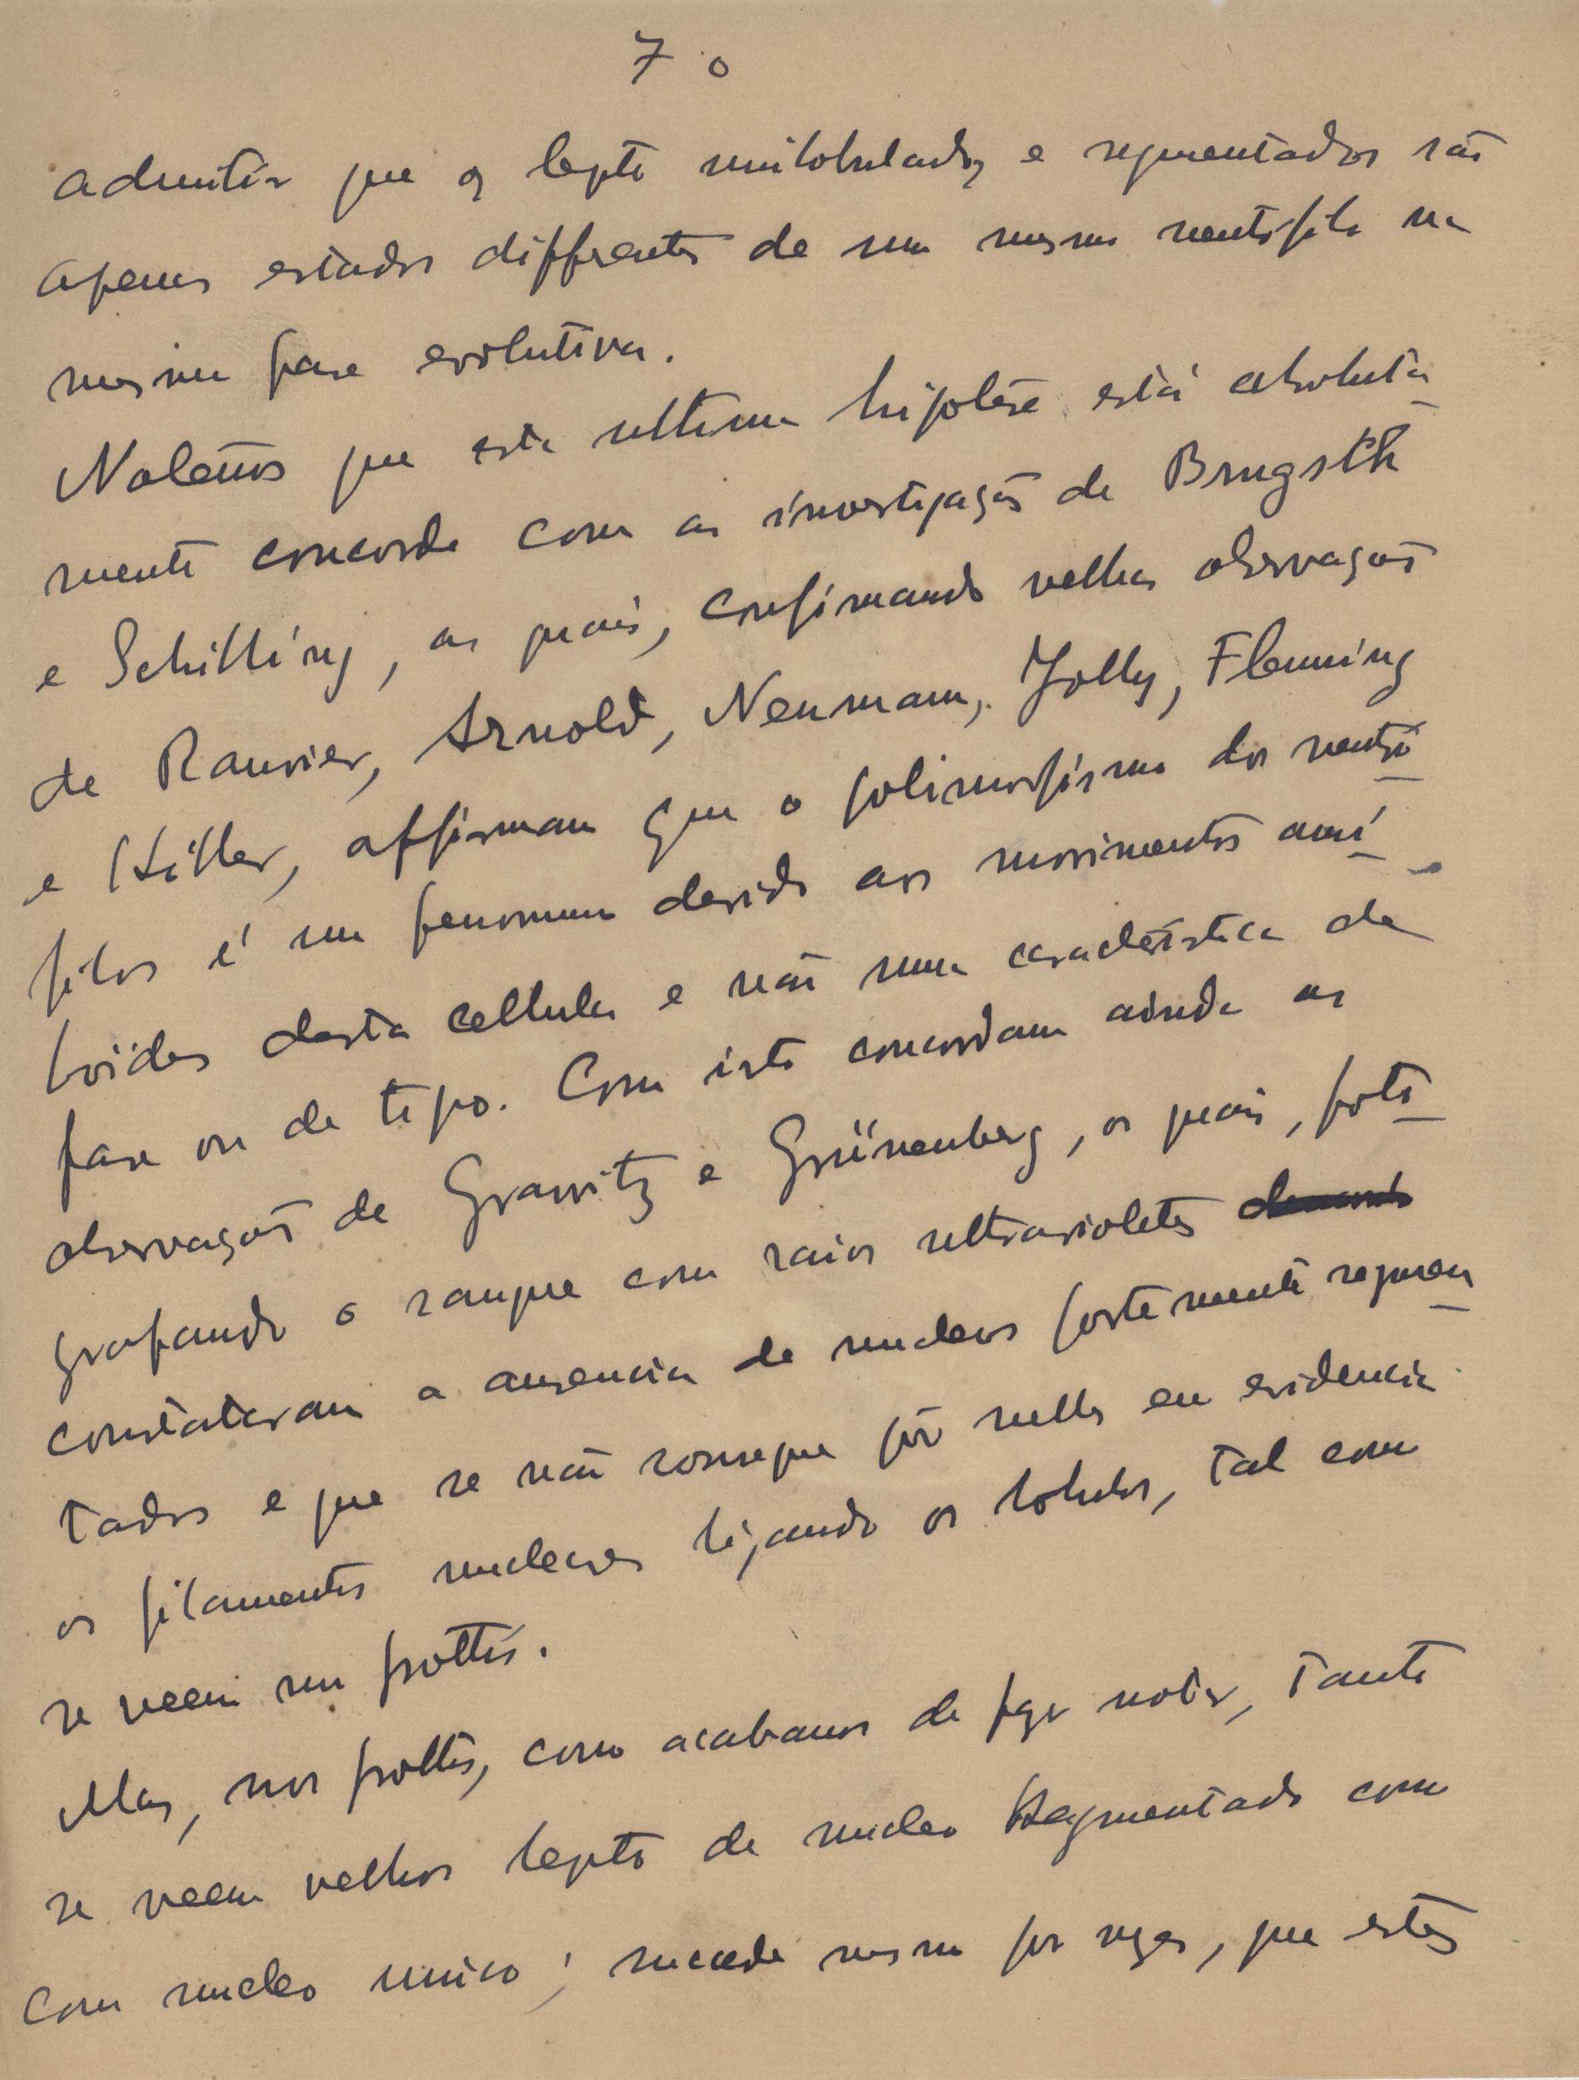 70
admitir que os lepto unilobulados e segmentados são
apenas estados differentes de um mesmo neutrofilo na
mesma fase evolutiva.
Notemos que esta ultima hipótese está absoluta-
mente concorde com as investigações de Brugsch
e Schilling, as quais, confirmando velhas observações
de Ranvier, Arnold, Neumann, Jolly, Flemming
e Hiller, affirmam que o polimorfismo dos neutro-
filos é um fenomeno devido aos movimentos ami-
boides desta cellula e não uma caracteristica de
fase ou de tipo. Com isto concordam ainda as
observações de Grawitz e Grünenberg, os quais, foto-
grafando o sangue com raios ultravioletes
constataram a ausencia de nucleos fortemente segmen-
tados e que se não consegue pôr nelles em evidencia
os filamentos nucleares ligando os lobulos, tal como
se veem nu frottis.
Mas, nos frottis, como acabamos de fazer notar, tanto
se veem velhos lepto de nucleo segmentado como
com nucleo unico; succede mesmo por vezes, que estes